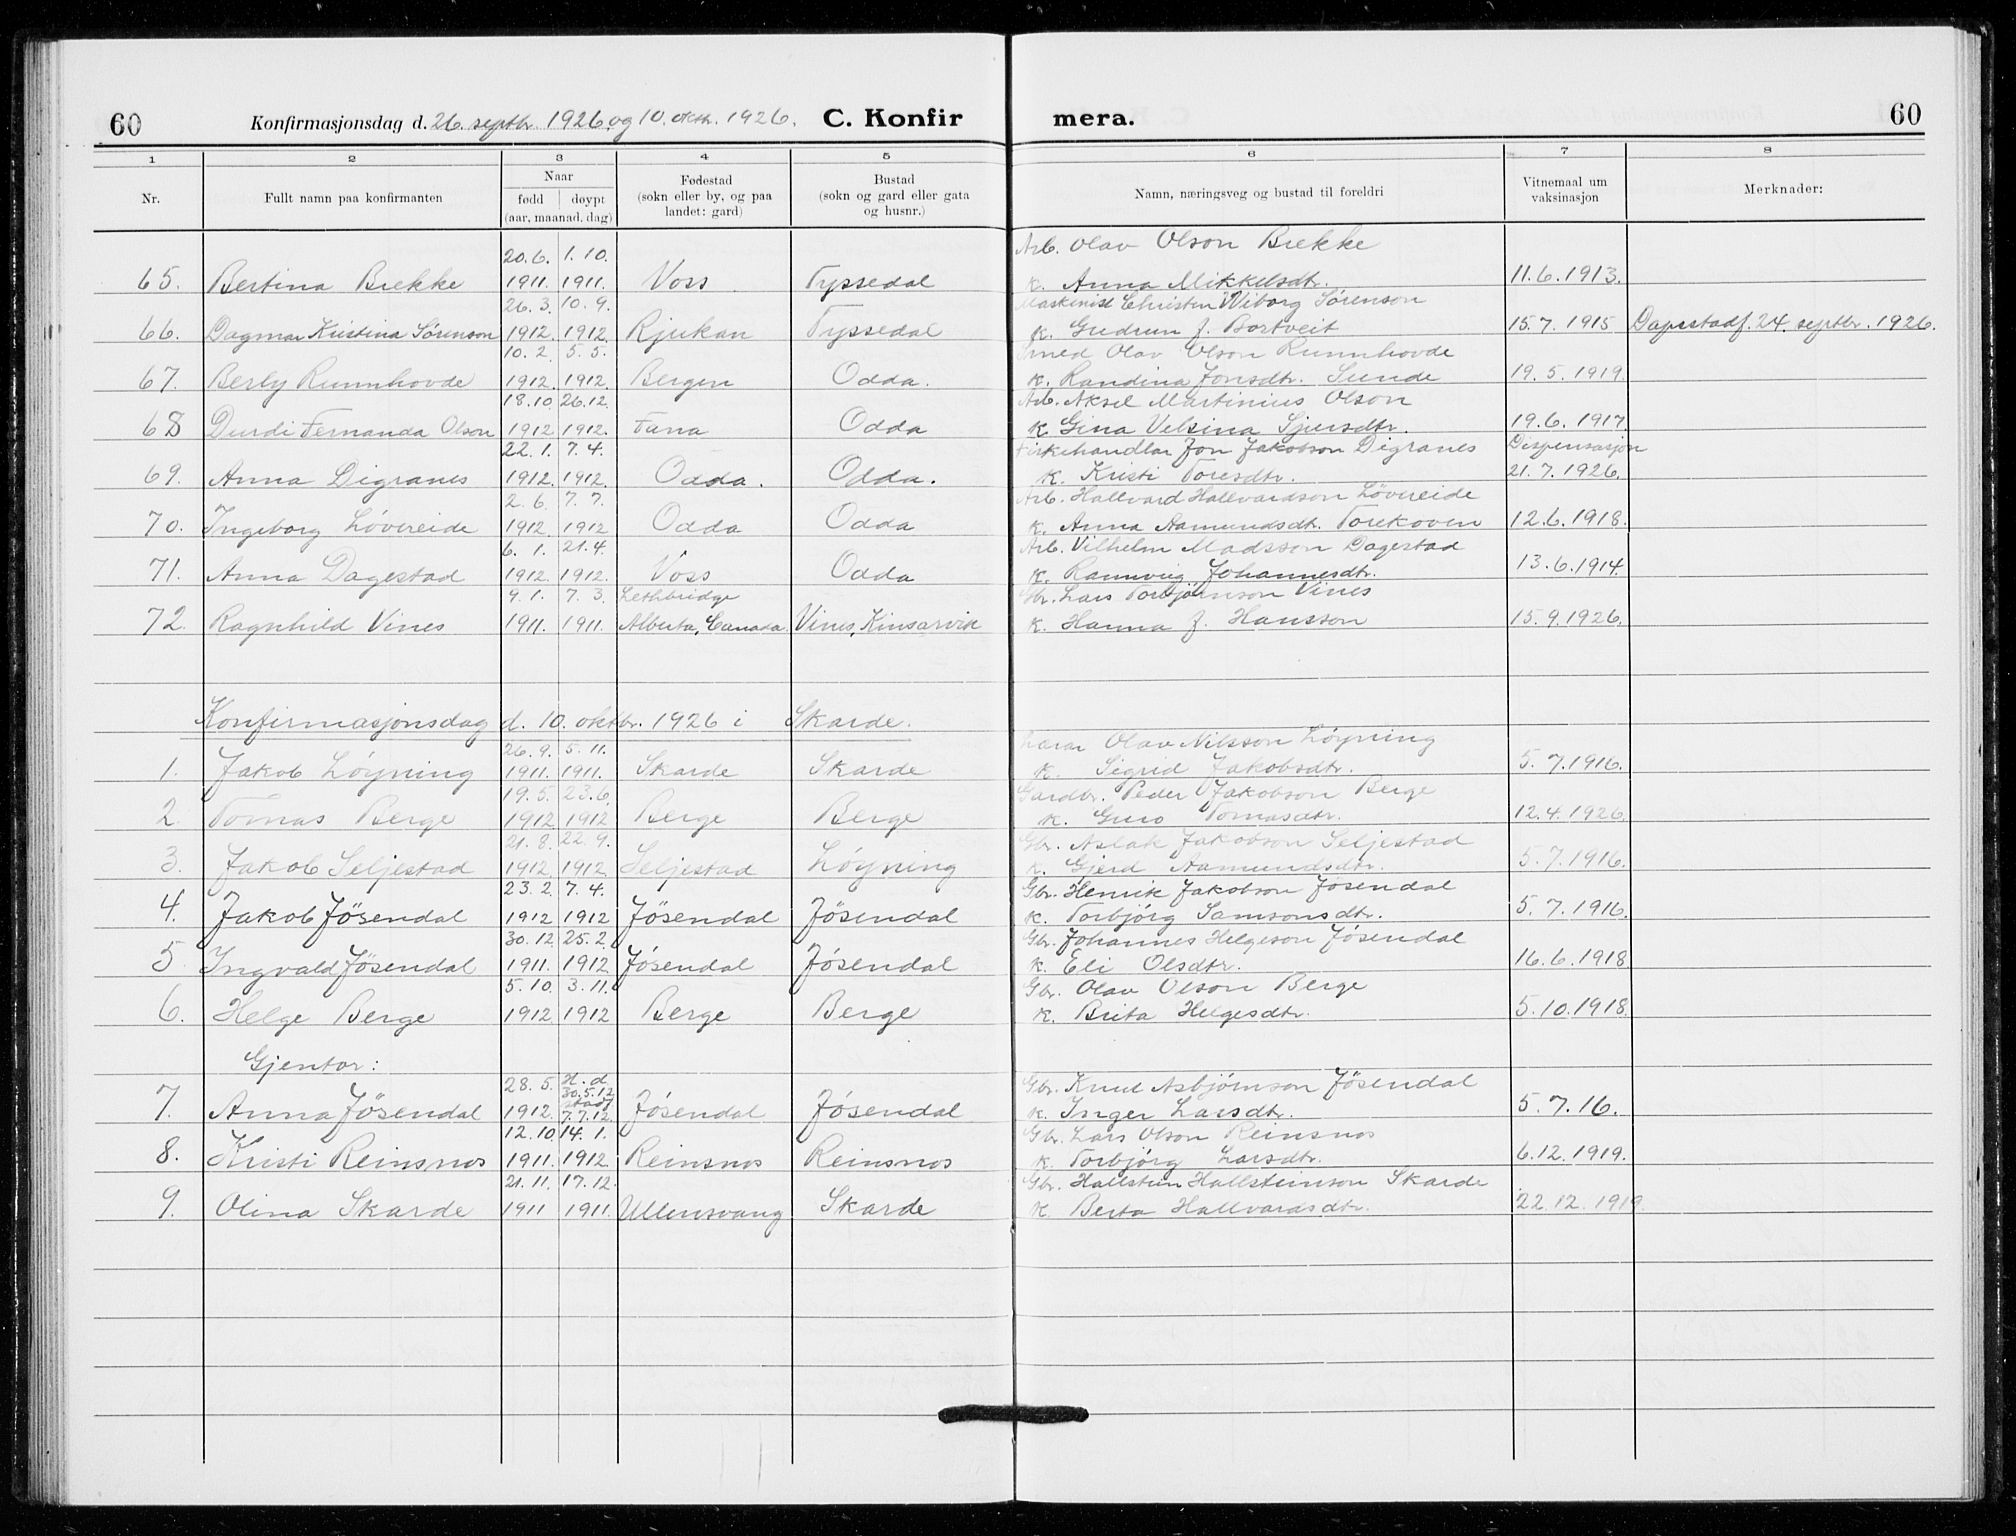 60 Konfirmasjonsdag d. 26. septbr 1926 og 10. oktr. 1926. C. Konfir mera. 60
1 2 3 4 5 6 7 8
Nr. Fullt namn paa konfirmanten Naar fødd døypt (aar, maanad, dag) Fødestad (sokn eller by, og paa landet: gard) Bustad (sokn og gard eller gata og husnr.) Namn, næringsveg og bustad til foreldri Vitnemaal um vaksinasjon Merknader:
20.6. 1.10. Arb. Olav Olson Brekke
65. Bertina Brekke 1911. 1911. Voss Tyssedal k. Anna Mikkelsdtr. 11.6.1913.
26.3. 10.9. Maskinist Christen Wiborg Sørenson
66. Dagmar Kristina Sørenson 1912. 1912. Rjukan Tyssedal k. Gudrun J. Bortveit 15.7.1915 Dapsstadf. 24. septbr. 1926.
10.2. 5.5. Smed Olav Olson Runnhovde
67. Berly Runnhovde 1912. 1912. Bergen Odda. k. Randina Jonsdtr. Sunde 19.5.1919.
18.10. 26.12. Arb. Aksel Martinius Olson
68 Durdi Fernanda Olson 1912 1912. Fana Odda k. Gina Velsina Sjursdtr. 19.6.1917.
22.1. 7.4. Fiskehandlar Jon Jakobson Digranes Dispensasjon
69. Anna Digranes 1912. 1912. Odda. Odda. k. Kristi Toresdtr. 21.7.1926.
2.6. 7.7. Arb. Hallvard Hallvardson Løvereide
70. Ingeborg Løvereide 1912. 1912 Odda Odda k. Anna Aamundsdt. Torekoven 12.6.1918.
6.1. 21.4. Arb. Vilhelm Madsson Dagestad
71. Anna Dagestad 1912. 1912. Voss Odda k. Rannveig Johannesdtr. 13.6.1914.
4.1. 7.3. Lethbridge Gbr. Lars Torbjørnson Vines
72. Ragnhild Vines 1911. 1911. Alberta, Canada. Vines, Kinsarvik k. Hanna J. Hansson 15.9.1926.
Konfirmasjonsdag d. 10. oktbr. 1926 i Skarde.
26.9. 5.11. Lærar Olav Nilsson Løyning
1. Jakob Løyning 1911. 1911. Skarde Skarde k. Sigrid Jakobsdtr. 5.7.1916.
19.5. 23.6. Gardbr. Peder Jakobson Berge
2. Tomas Berge 1912. 1912 Berge Berge k. Guro Tomasdtr. 12.4.1926.
21.8. 22.9. Gbr. Aslak Jakobson Seljestad
3. Jakob Seljestad 1912. 1912. Seljestad Løyning k. Gjerd Aamundsdtr. 5.7.1916.
23.2. 7.4. Gbr. Henrik Jakobson Jösendal
4. Jakob Jösendal 1912 1912 Jösendal Jösendal k. Torbjörg Samsonsdtr. 5.7.1916.
30.12. 25.2. Gbr. Johannes Helgeson Jösendal
5 Ingvald Jösendal 1911. 1912 Jösendal Jösendal k. Eli Olsdtr. 16.6.1918.
5.10. 3.11. Gbr. Olav Olson Berge
6. Helge Berge 1912. 1912 Berge Berge k. Brita Helgesdtr. 5.10.1918.
Gjentor:
28.5. H.d. 30.5.12 Gbr. Knut Asbjörnson Jösendal
7. Anna Jösendal 1912. stadf 7.7.12. Jösendal Jösendal k. Inger Larsdtr. 5.7.16.
12.10. 14.1. Gbr. Lars Olson Reinsnos
8. Kristi Reinsnos 1911. 1912. Reinsnos Reinsnos k. Torbjörg Larsdtr. 6.12.1919.
21.11. 17.12. Gbr. Hallstein Hallsteinson Skarde
9. Olina Skarde 1911 1911. Ullensvang Skarde k. Berta Hallvardsdtr. 22.12.1919.